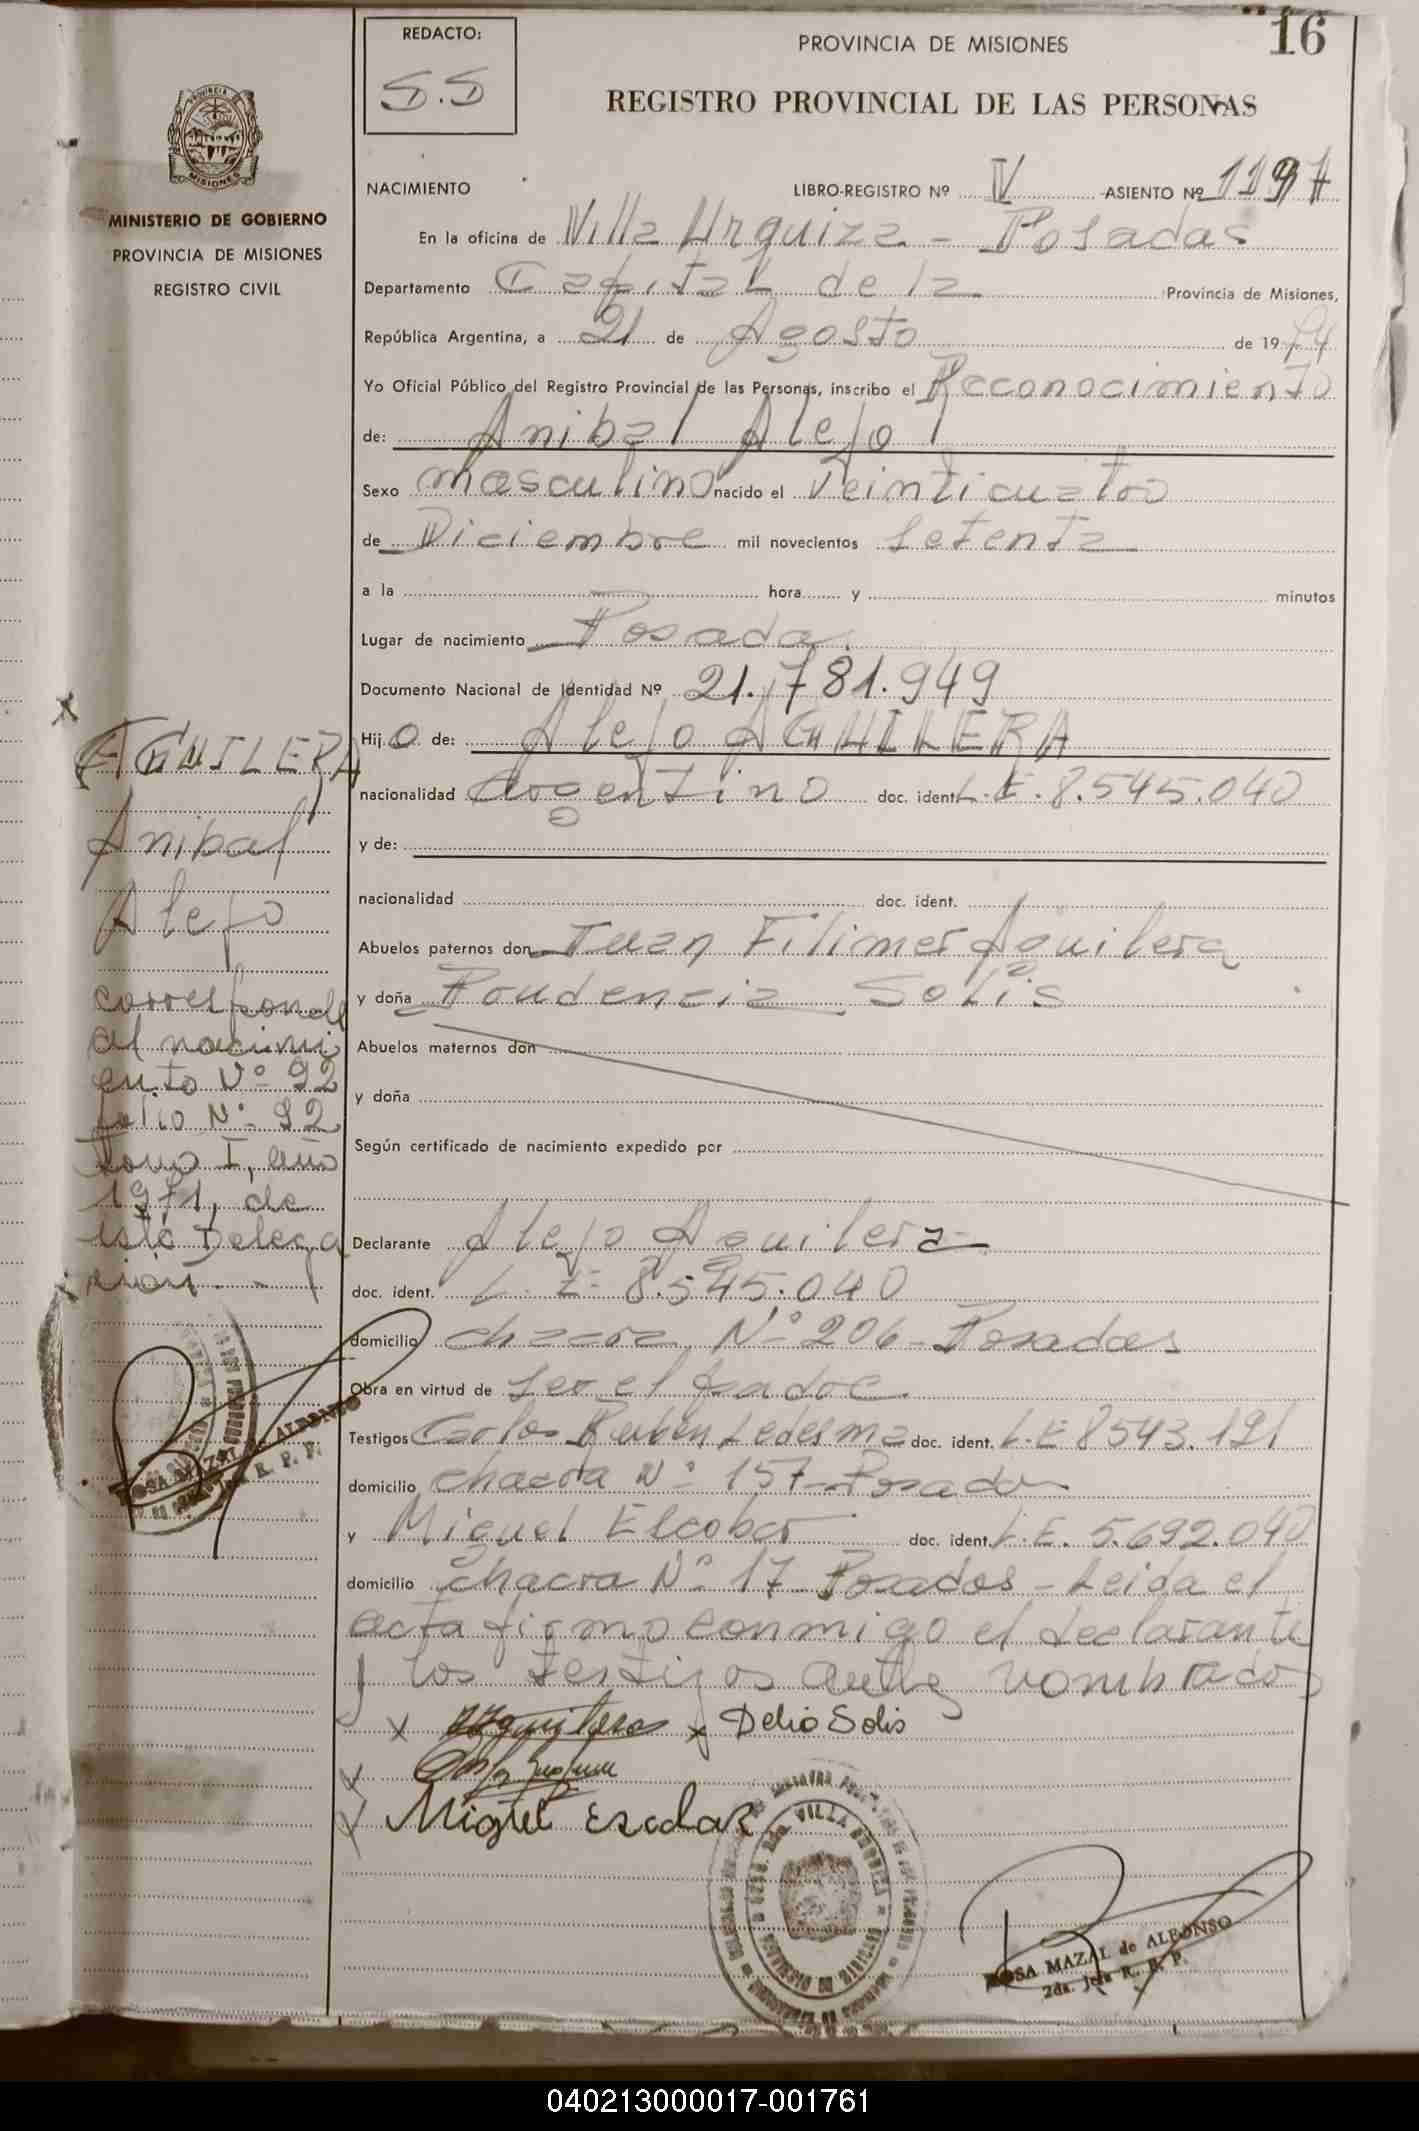 REDACTO:
S.S
16
PROVINCIA DE MISIONES
REGISTRO PROVINCIAL DE LAS PERSONAS
PROVINCIA DE
MISIONES
MINISTERIO DE GOBIERNO
PROVINCIA DE MISIONES
REGISTRO CIVIL
NACIMIENTO LIBRO-REGISTRO Nº IV ASIENTO Nº 1197
En la oficina de Villa Urquiza - Posadas
Departamento Capital de la Provincia de Misiones,
República Argentina, a 21 de Agosto de 1974
Yo Oficial Público del Registro Provincial de las Personas, inscribo el Reconocimiento
de: Anibal Alejo
Sexo masculino nacido el Veinticuatro
de Diciembre mil novecientos Setenta
a la hora y minutos
Lugar de nacimiento Posadas
Documento Nacional de Identidad Nº 21.781.949
Hijo de: Alejo AGUILERA
nacionalidad Argentino doc. ident. L.E. 8.545.040
y de:
nacionalidad doc. ident.
Abuelos paternos don Juan Filimer Aguilera
y doña Prudencia Solis
Abuelos maternos don
y doña
Según certificado de nacimiento expedido por
Declarante Alejo Aguilera
doc. ident. L.E. 8.545.040
domicilio chacra Nº 206 - Posadas
Obra en virtud de ser el padre
Testigos Carlos Ruben Ledesma doc. ident. L.E 8543.191
domicilio chacra Nº 157 - Posadas
y Miguel Escobar doc. ident. L.E. 5.692.040
domicilio chacra Nº 17 Posadas - Leida el
acta firmo conmigo el declarante
y los testigos antes nombrados
x Aguilera x Delio Solis
Miguel Escobar
AGUILERA
Anibal
Alejo
corresponde
al nacimi
ento Nº 92
folio Nº 92
Tomo I, año
1971, de
esta Delega
cion.
ROSA MAZAL de ALFONSO
R. P. P.
VILLA URQUIZA
ROSA MAZAL de ALFONSO
2da. Jefa R. P. P.
040213000017-001761